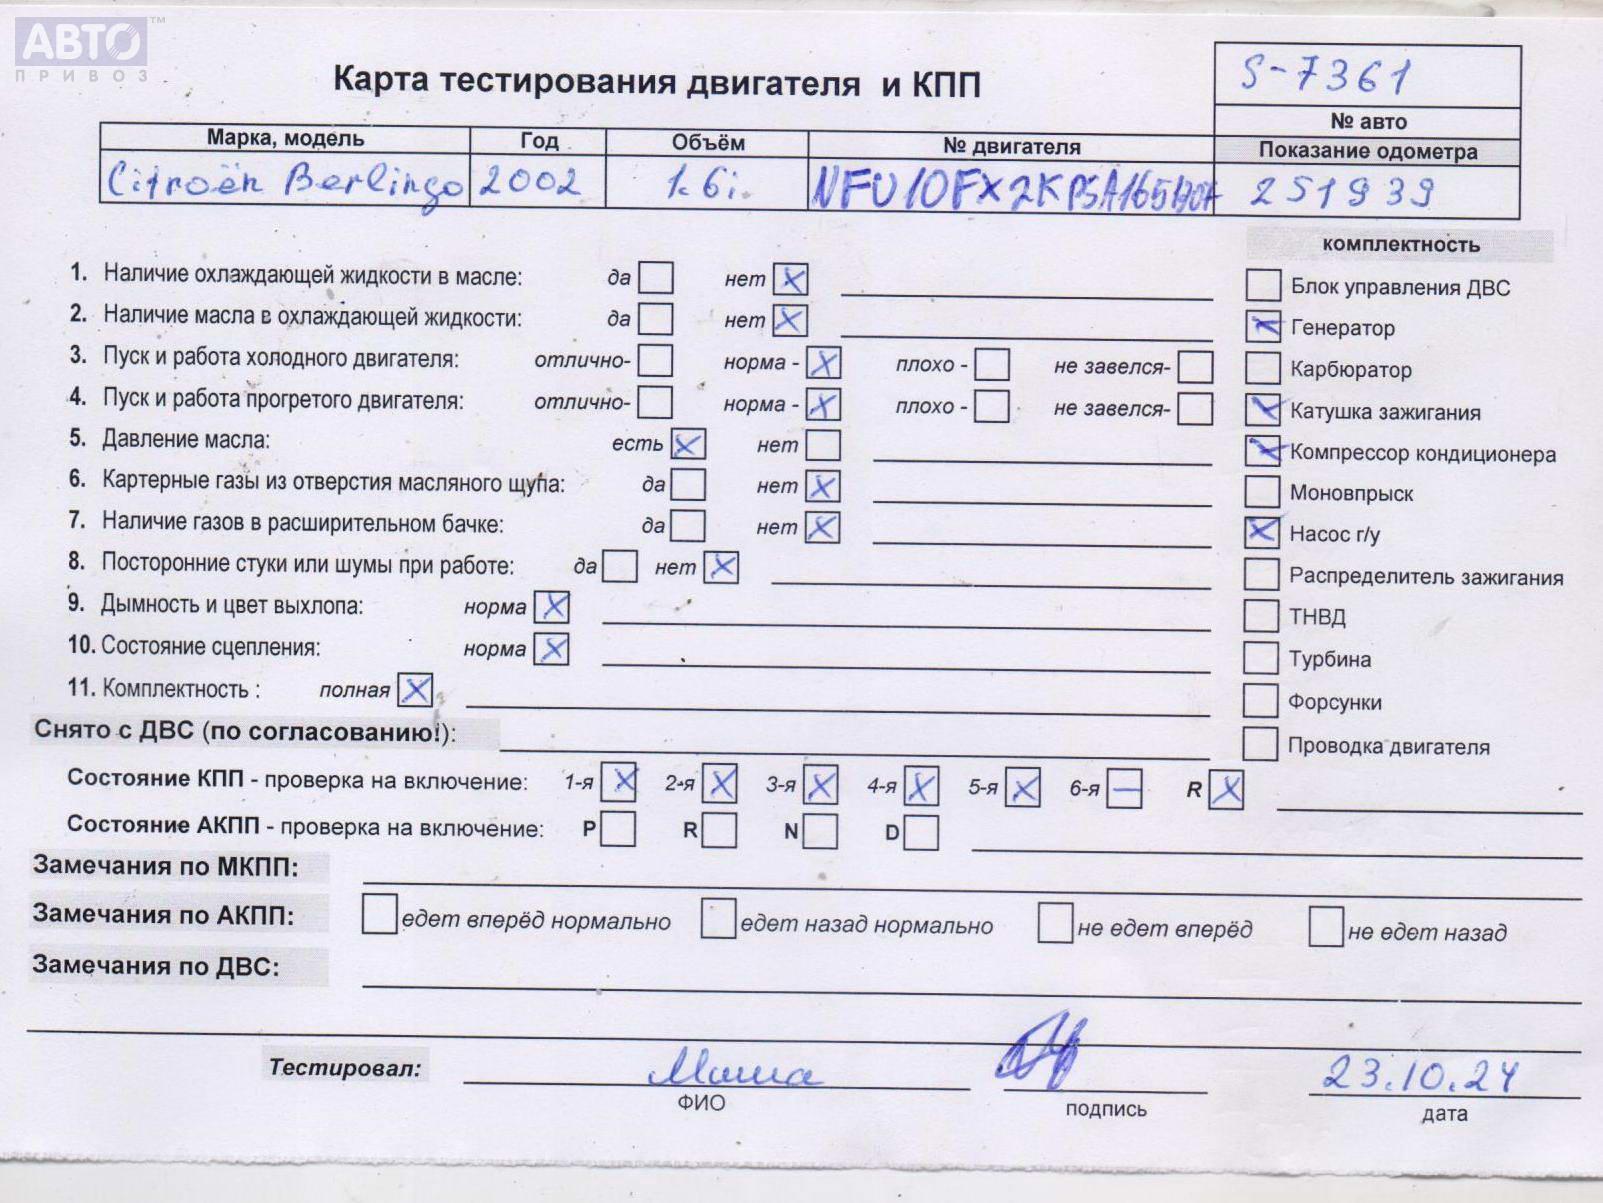 АВТО™
ПРИВОЗ
Карта тестирования двигателя и КПП
S-7361
№ авто
Марка, модель Год Объём № двигателя Показание одометра
Citroën Berlingo 2002 1.6i. NFU10FX2KPSA 251939
комплектность
1. Наличие охлаждающей жидкости в масле: да нет X
Блок управления ДВС
2. Наличие масла в охлаждающей жидкости: да нет X
X Генератор
3. Пуск и работа холодного двигателя: отлично- норма - X плохо - не завелся-
Карбюратор
4. Пуск и работа прогретого двигателя: отлично- норма - X плохо - не завелся-
X Катушка зажигания
5. Давление масла: есть X нет
X Компрессор кондиционера
6. Картерные газы из отверстия масляного щупа: да нет X
Моновпрыск
7. Наличие газов в расширительном бачке: да нет X
X Насос г/у
8. Посторонние стуки или шумы при работе: да нет X
Распределитель зажигания
9. Дымность и цвет выхлопа: норма X
ТНВД
10. Состояние сцепления: норма X
Турбина
11. Комплектность : полная X
Форсунки
Снято с ДВС (по согласованию!):
Проводка двигателя
Состояние КПП - проверка на включение: 1-я X 2-я X 3-я X 4-я X 5-я X 6-я — R X
Состояние АКПП - проверка на включение: P R N D
Замечания по МКПП:
Замечания по АКПП: едет вперёд нормально едет назад нормально не едет вперёд не едет назад
Замечания по ДВС:
Тестировал: 23.10.24
ФИО подпись дата